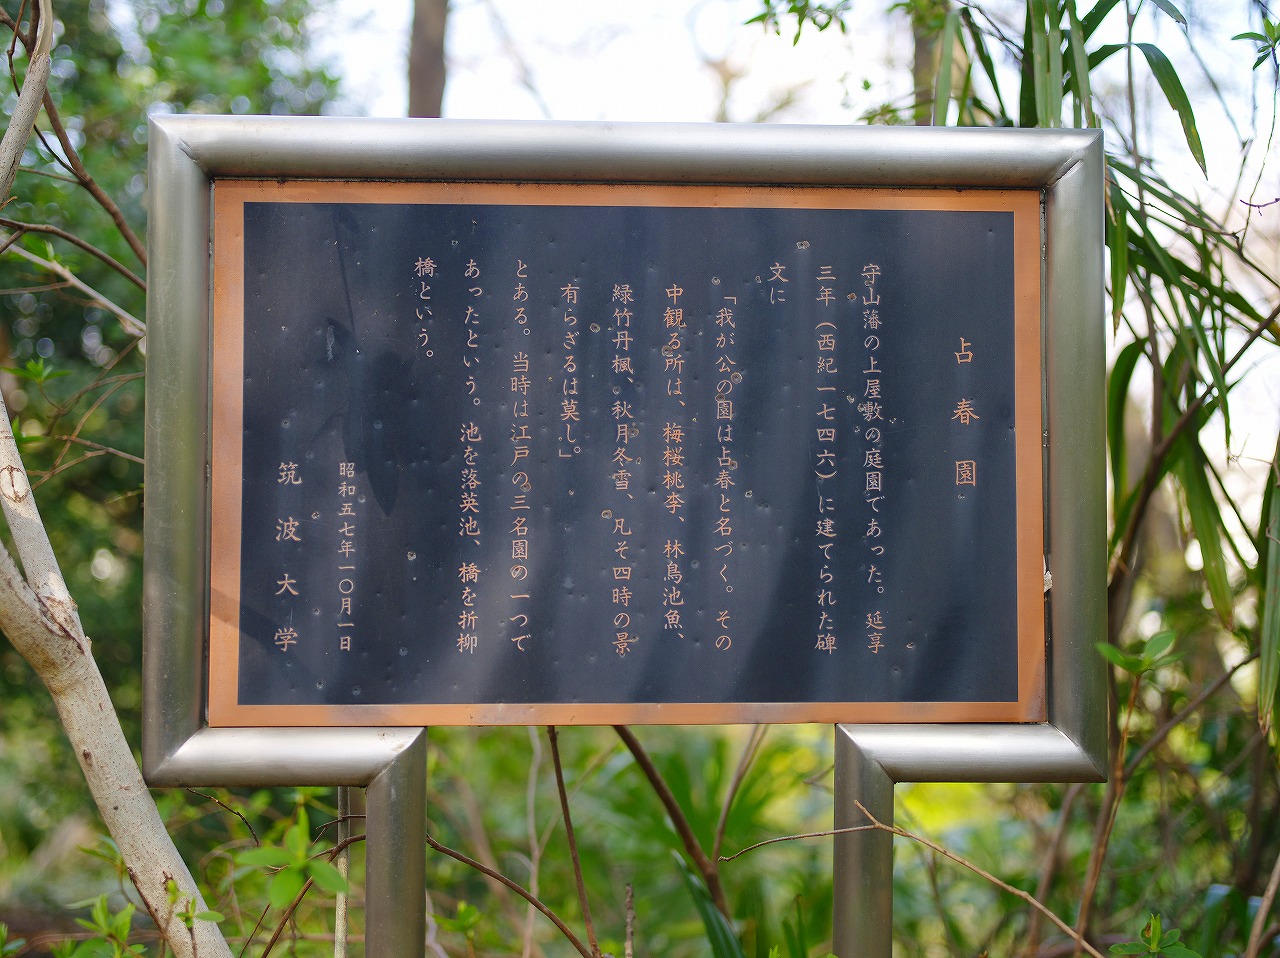 占春園
守山藩の上屋敷の庭園であった。延享
三年(西紀一七四六)に建てられた碑
文に
「我が公の園は占春と名づく。その
中観る所は、梅桜桃李、林鳥池魚、
緑竹丹楓、秋月冬雪、凡そ四時の景
有らざるは莫し。」
とある。当時は江戸の三名園の一つで
あったという。池を落英池、橋を折柳
橋という。
昭和五七年一〇月一日
筑波大学